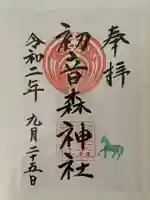 奉拝
初音森神社
令和二年 九月二十五日